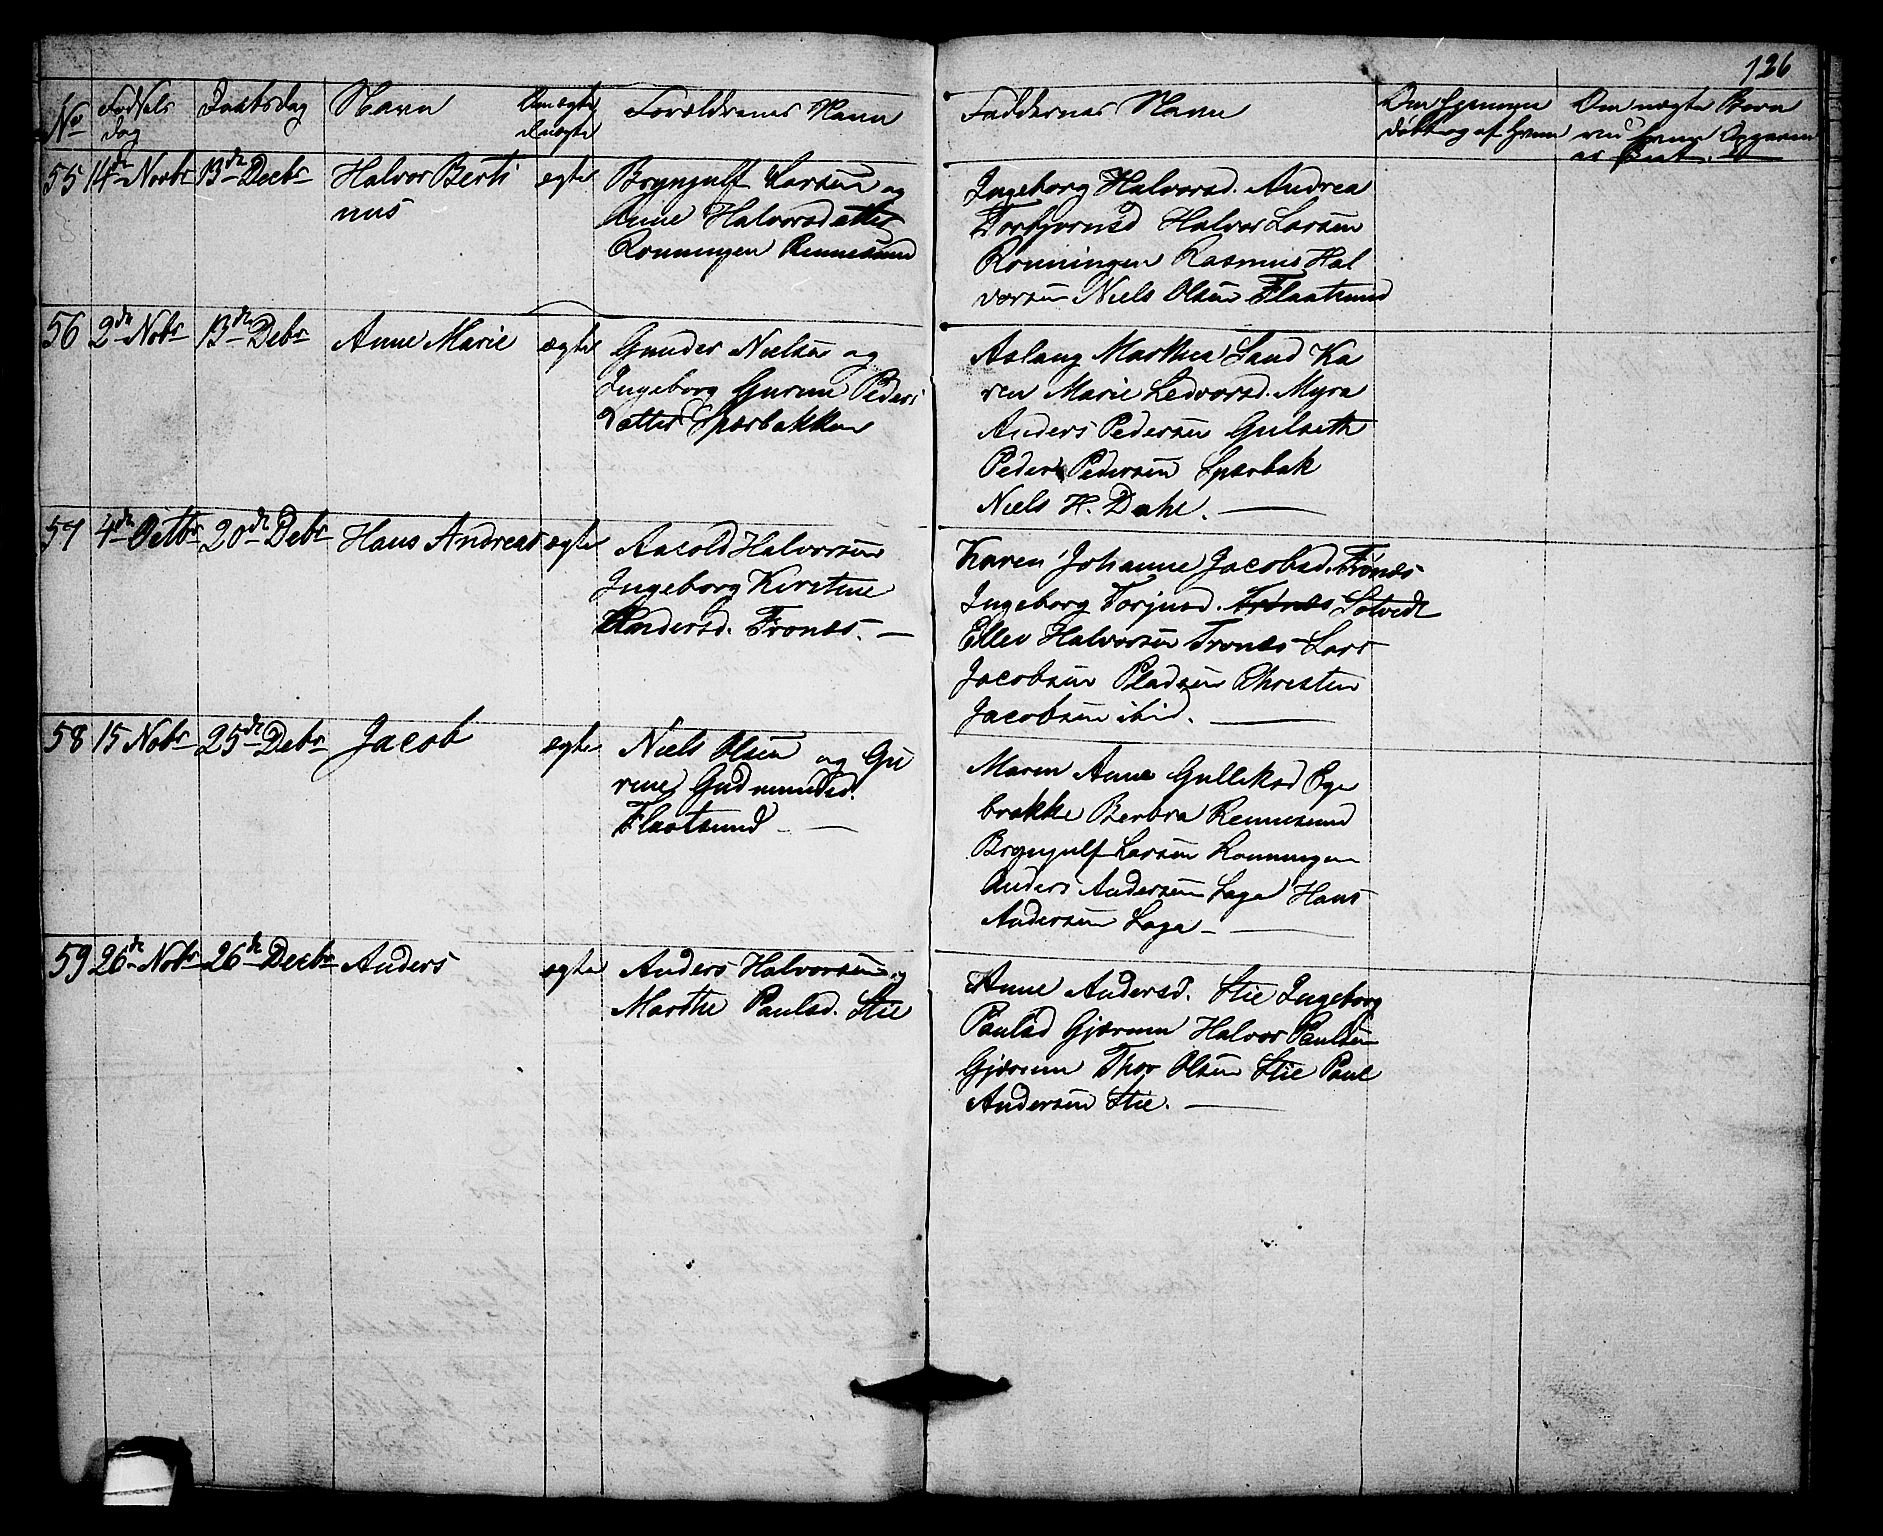 126
No
Fødsels
dag
Daabsdag
Navn
Om ægte
Uægte
Forældrenes Navn
Faddernes Navn
Om hjemme
døbt og af hvem
Om uægte Barn
55 14de Novbr 13de Decbr Halvor Berti
nus
ægte
Brynjulf Larsen og
Anne Halvorsdatter
Ronningen Rennesund
Ingeborg Halvorsd. Andrea
Torbjornsd Halvor Larsen
Ronningen Rasmus Hal
vorsen Niels Olsen Flaatsund
56 2de Nobr 13de Debr Anne Marie
ægte
Gunder Nielsen og
Ingeborg Gurine Peders
Datter Spærbakken
Aslaug Marthea Sand Ka
ren Marie Ledvorsd. Myra
Anders Pedersen Gulseth
Peder Pedersen Spærbak
Niels H. Dahl.
57 4de Octbr 20de Debr Hans Andreas
ægte
Aasold Halvorsen
Ingeborg Kirstine
Andersd. Tronæs.
Karen Johanne Jacobsd. Tronæs
Ingeborg Torjusd. Tronæs Solvedt
Ellev Halvorsen Tronæs Lars
Jacobsen Pladsen Christen
Jacobsen ibid.
58 15 Nobr 25de Debr Jacob
ægte
Niels Olsen og Gu
rine Gudmundsd.
Flaatsund
Maren Anne Gulliksd Ege
brække Berbra Rennesund
Brynjulf Larsen Ronningen
Anders Andersen Laga Hans
Andersen Laga
59 26de Nobr 26de Decbr Anders
ægte
Anders Halvorsen og
Marthe Paulsd. Stie
Anne Andersd. Stie Ingeborg
Paulsd Gjærum Halvor Paulsen
Gjærum Thor Olsen Stie Paul
Andersen Stie.